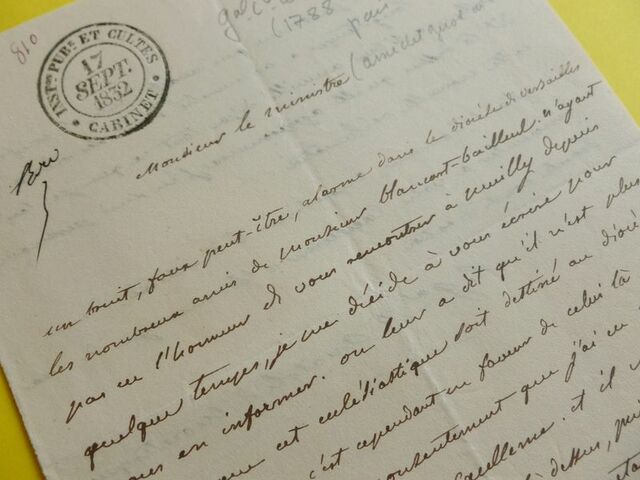 810
INSTon PUBe ET CULTES
17
SEPT.
1832
* CABINET *
(1788
Monsieur le ministre
un bruit, faux peut-être, alarme dans le diocèse de Versailles
les nombreux amis de Monsieur blancart-bailleul. n'ayant
pas eu l'honneur de vous rencontrer à neuilly depuis
quelque temps, je me décide à vous écrire pour
vous en informer. on leur a dit qu'il n'est plus
que cet ecclésiastique soit destiné au
c'est cependant en faveur de celui là
que j'ai eu
excellence. et il
dessus,